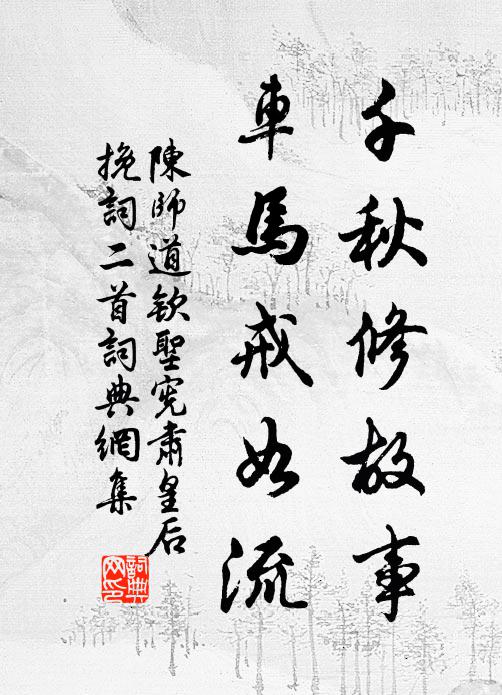 千秋修故事
車馬戒如流
陳師道欽聖憲肅皇后
挽詞二首詞典網集
詞典网印